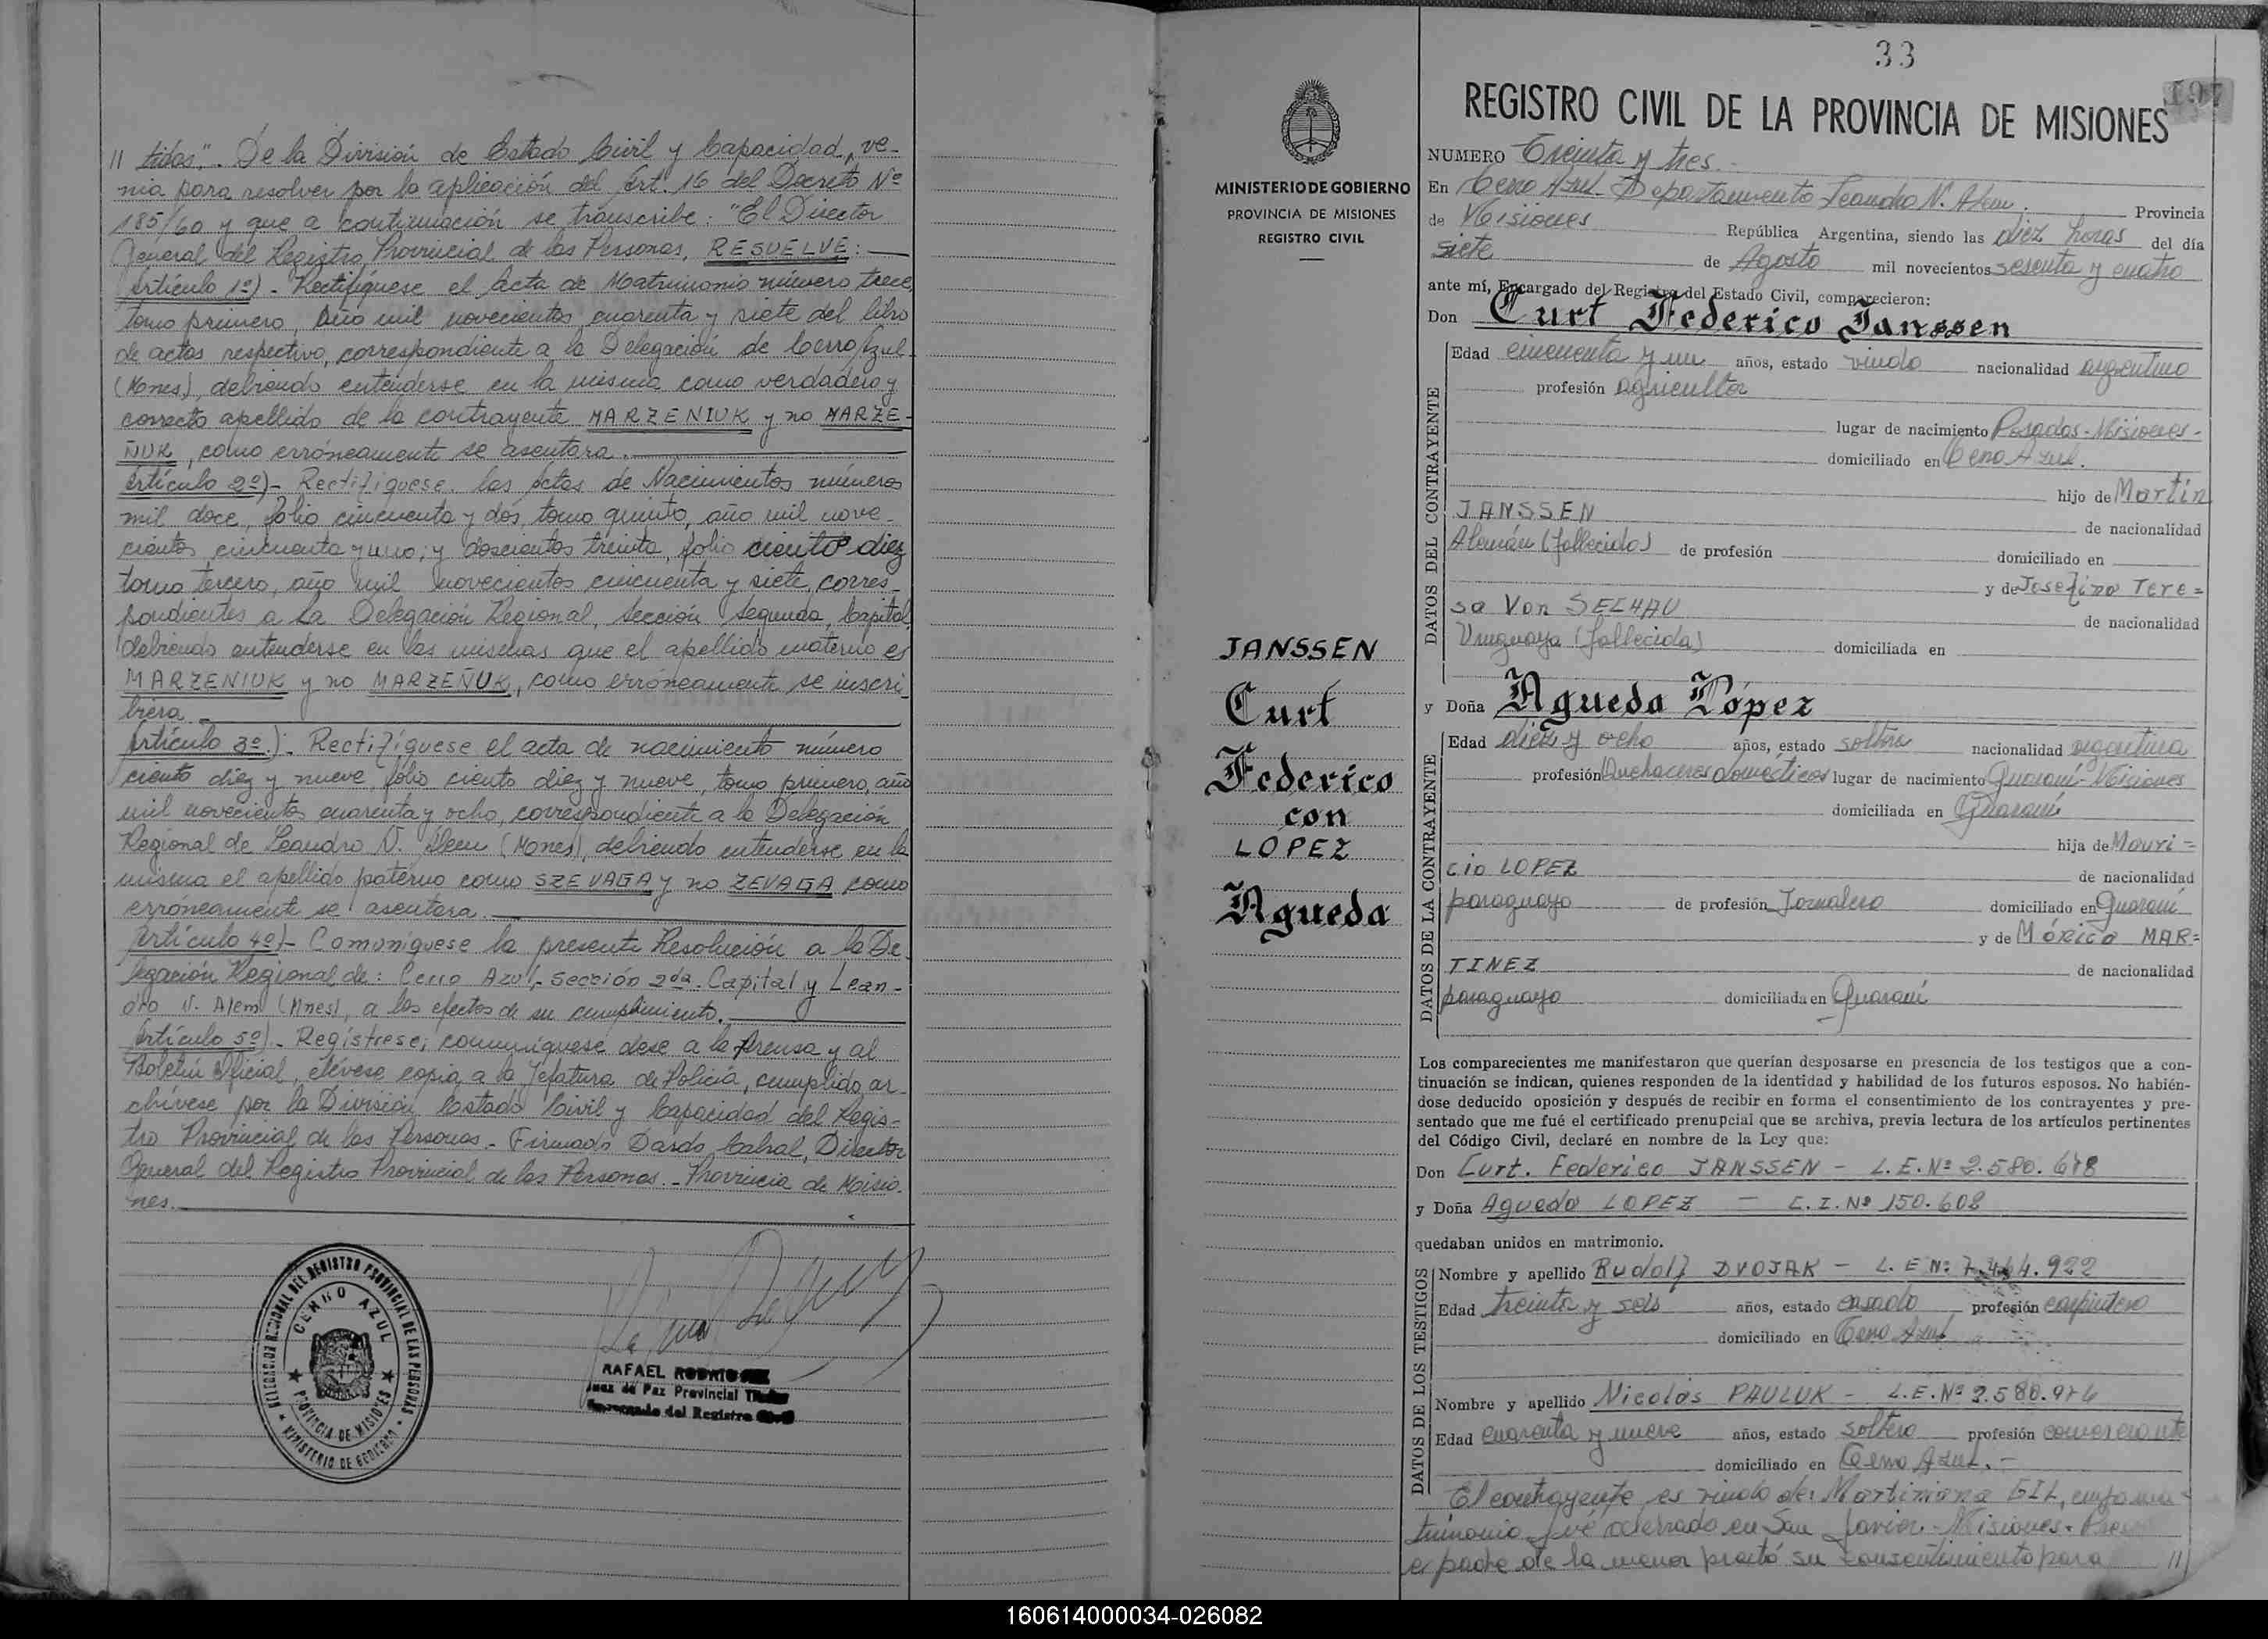 // tidos". De la División de Estado Civil y Capacidad, ve-
nia para resolver por la aplicación del Art. 16 del Decreto Nº
185/60 y que a continuación se transcribe: "El Director
General del Registro Provincial de las Personas, RESUELVE:
Artículo 1º)- Rectifíquese el Acta de Matrimonio número trece,
tomo primero, Año mil novecientos cuarenta y siete del libro
de actas respectivo, correspondiente a la Delegación de Cerro Azul
(Mnes), debiendo entenderse en la misma como verdadero y
correcto apellido de la contrayente MARZENIUK y no MARZE-
ÑUK, como erróneamente se asentara.
Artículo 2º)- Rectifíquese las Actas de Nacimientos números
mil doce, folio cincuenta y dos, tomo quinto, año mil nove-
cientos cincuenta y uno; y doscientos treinta, folio ciento diez
tomo tercero, año mil novecientos cincuenta y siete, corres-
pondientes a la Delegación Regional, Sección Segunda, Capital,
debiendo entenderse en las mismas que el apellido materno es
MARZENIUK y no MARZEÑUK, como erróneamente se inscri-
biera.
Artículo 3º)- Rectifíquese el acta de nacimiento número
ciento diez y nueve, folio ciento diez y nueve, tomo primero, año
mil novecientos cuarenta y ocho, correspondiente a la Delegación
Regional de Leandro N. Alem (Mnes), debiendo entenderse en la
misma el apellido paterno como SZEVAGA y no ZEVAGA como
erróneamente se asentara.
Artículo 4º)- Comuníquese la presente Resolución a la De-
legación Regional de: Cerro Azul, Sección 2da. Capital y Lean-
dro N. Alem (Mnes), a los efectos de su cumplimiento.
Artículo 5º)- Regístrese; comuníquese dese a la Prensa y al
Boletín Oficial, elévese copia a la Jefatura de Policía, cumplido, ar-
chívese por la División Estado Civil y Capacidad del Regis-
tro Provincial de las Personas.- Firmado Dardo Cabral, Director
General del Registro Provincial de las Personas.- Provincia de Misio-
nes.
DELEGACION REGIONAL DEL REGISTRO PROVINCIAL DE LAS PERSONAS
CERRO AZUL
PROVINCIA DE MISIONES
MINISTERIO DE GOBIERNO
RAFAEL
Juez de Paz Provincial
Encargado del Registro Civil
MINISTERIO DE GOBIERNO
PROVINCIA DE MISIONES
REGISTRO CIVIL
JANSSEN
Curt
Federico
con
LOPEZ
Agueda
33
197
REGISTRO CIVIL DE LA PROVINCIA DE MISIONES
NUMERO Treinta y tres.-
En Cerro Azul. Departamento Leandro N. Alem. Provincia
de Misiones República Argentina, siendo las diez horas del día
siete de Agosto mil novecientos sesenta y cuatro
ante mí, Encargado del Registro del Estado Civil, comparecieron:
Don Curt Federico Janssen
DATOS DEL CONTRAYENTE
Edad cincuenta y un años, estado viudo nacionalidad argentino
profesión agricultor
lugar de nacimiento Posadas-Misiones-
domiciliado en Cerro Azul.
hijo de Martín
JANSSEN de nacionalidad
Alemán (fallecido) de profesión domiciliado en
y de Josefina Tere=
sa Von SELHAU de nacionalidad
Uruguaya (fallecida) domiciliada en
y Doña Agueda López
DATOS DE LA CONTRAYENTE
Edad diez y ocho años, estado soltera nacionalidad argentina
profesión Quehaceres domésticos lugar de nacimiento Guaraní-Misiones
domiciliada en Guaraní
hija de Mauri=
cio LOPEZ de nacionalidad
paraguayo de profesión Jornalero domiciliado en Guaraní
y de Mórica MAR=
TINEZ de nacionalidad
paraguaya domiciliada en Guaraní
Los comparecientes me manifestaron que querían desposarse en presencia de los testigos que a con-
tinuación se indican, quienes responden de la identidad y habilidad de los futuros esposos. No habién-
dose deducido oposición y después de recibir en forma el consentimiento de los contrayentes y pre-
sentado que me fué el certificado prenupcial que se archiva, previa lectura de los artículos pertinentes
del Código Civil, declaré en nombre de la Ley que:
Don Curt. Federico JANSSEN - L.E.Nº 2.580.678
y Doña Agueda LOPEZ - C.I.Nº 150.608
quedaban unidos en matrimonio.
DATOS DE LOS TESTIGOS
Nombre y apellido Rudolf DVOJAK - L.E Nº 7.464.922
Edad treinta y seis años, estado casado profesión carpintero
domiciliado en Cerro Azul
Nombre y apellido Nicolás PAULUK - L.E.Nº 2.580.976
Edad cuarenta y nueve años, estado soltero profesión comerciante
domiciliado en Cerro Azul.-
El contrayente es viudo de: Martiniana GIL, cuyo ma-
trimonio fué celebrado en San Javier.-Misiones.-
el padre de la menor prestó su consentimiento para //
160614000034-026082